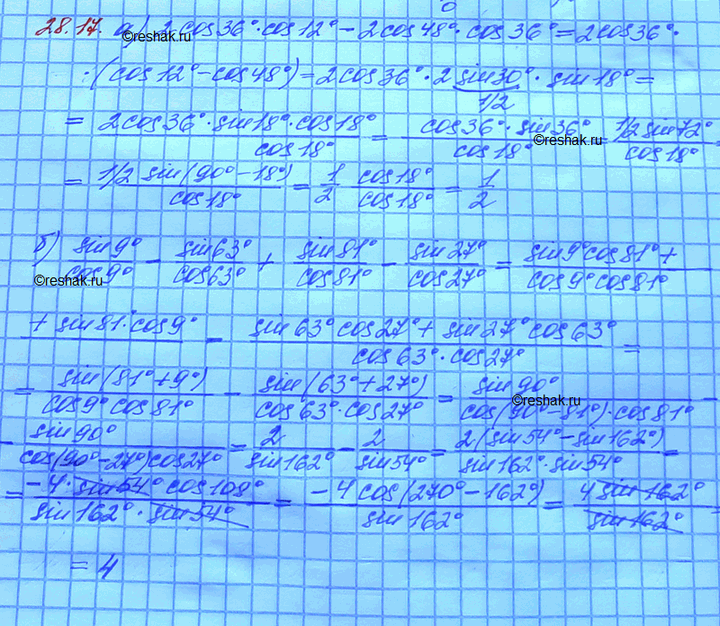 28.17. а) 2cos36°·cos12° - 2cos48°·cos36° = 2cos36°·
©reshak.ru
·(cos12° - cos48°) = 2cos36°·2 sin30°·sin18° =
1/2
= 2cos36°·sin18°·cos18° / cos18° = cos36°·sin36° / cos18° = 1/2 sin72° / cos18° =
©reshak.ru
= 1/2 sin(90°-18°) / cos18° = 1/2 cos18° / cos18° = 1/2
б) sin9°/cos9° - sin63°/cos63° + sin81°/cos81° - sin27°/cos27° = sin9°cos81°+ / cos9°cos81°
©reshak.ru
+ sin81°cos9° - sin63°cos27° + sin27°cos63° / cos63°·cos27° =
= sin(81°+9°) / cos9°cos81° - sin(63°+27°) / cos63°·cos27° = sin90° / cos(90°-81°)·cos81° -
©reshak.ru
- sin90° / cos(90°-27°)cos27° = 2/sin162° - 2/sin54° = 2(sin54°-sin162°) / sin162°·sin54° =
= -4·sin54°cos108° / sin162°·sin54° = -4cos(270°-162°) / sin162° = 4sin162° / sin162° =
= 4